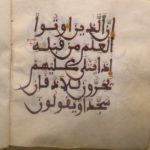 ان الذين اوتوا
العلم من قبله
اذا يتلى عليهم
يخرون للاذقان
سجدا ويقولون